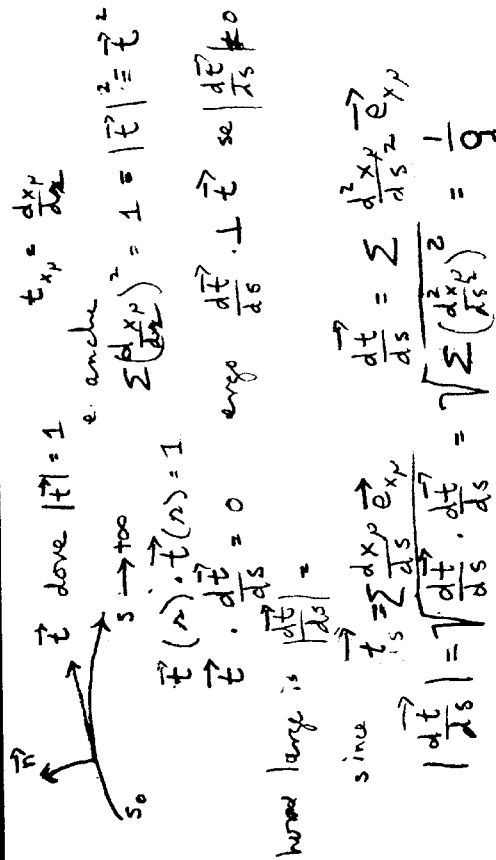 n⃗ t⃗ dove |t⃗| = 1 t_{xμ} = dxμ/ds
s₀ s → +∞ e anche Σ(dxμ/ds)² = 1 = |t⃗|² = t⃗²
t⃗(s) · t⃗(s) = 1
t⃗ · dt⃗/ds = 0 ergo dt⃗/ds · ⊥ t⃗ se |dt⃗/ds| ≠ 0
how large is |dt⃗/ds| =
since t⃗ₛ = Σ dxμ/ds e⃗_{xμ} dt⃗/ds = Σ d²xμ/ds² e⃗_{xμ}
|dt⃗/ds| = √(dt⃗/ds · dt⃗/ds) = √(Σ(d²xμ/ds²)²) = 1/ρ